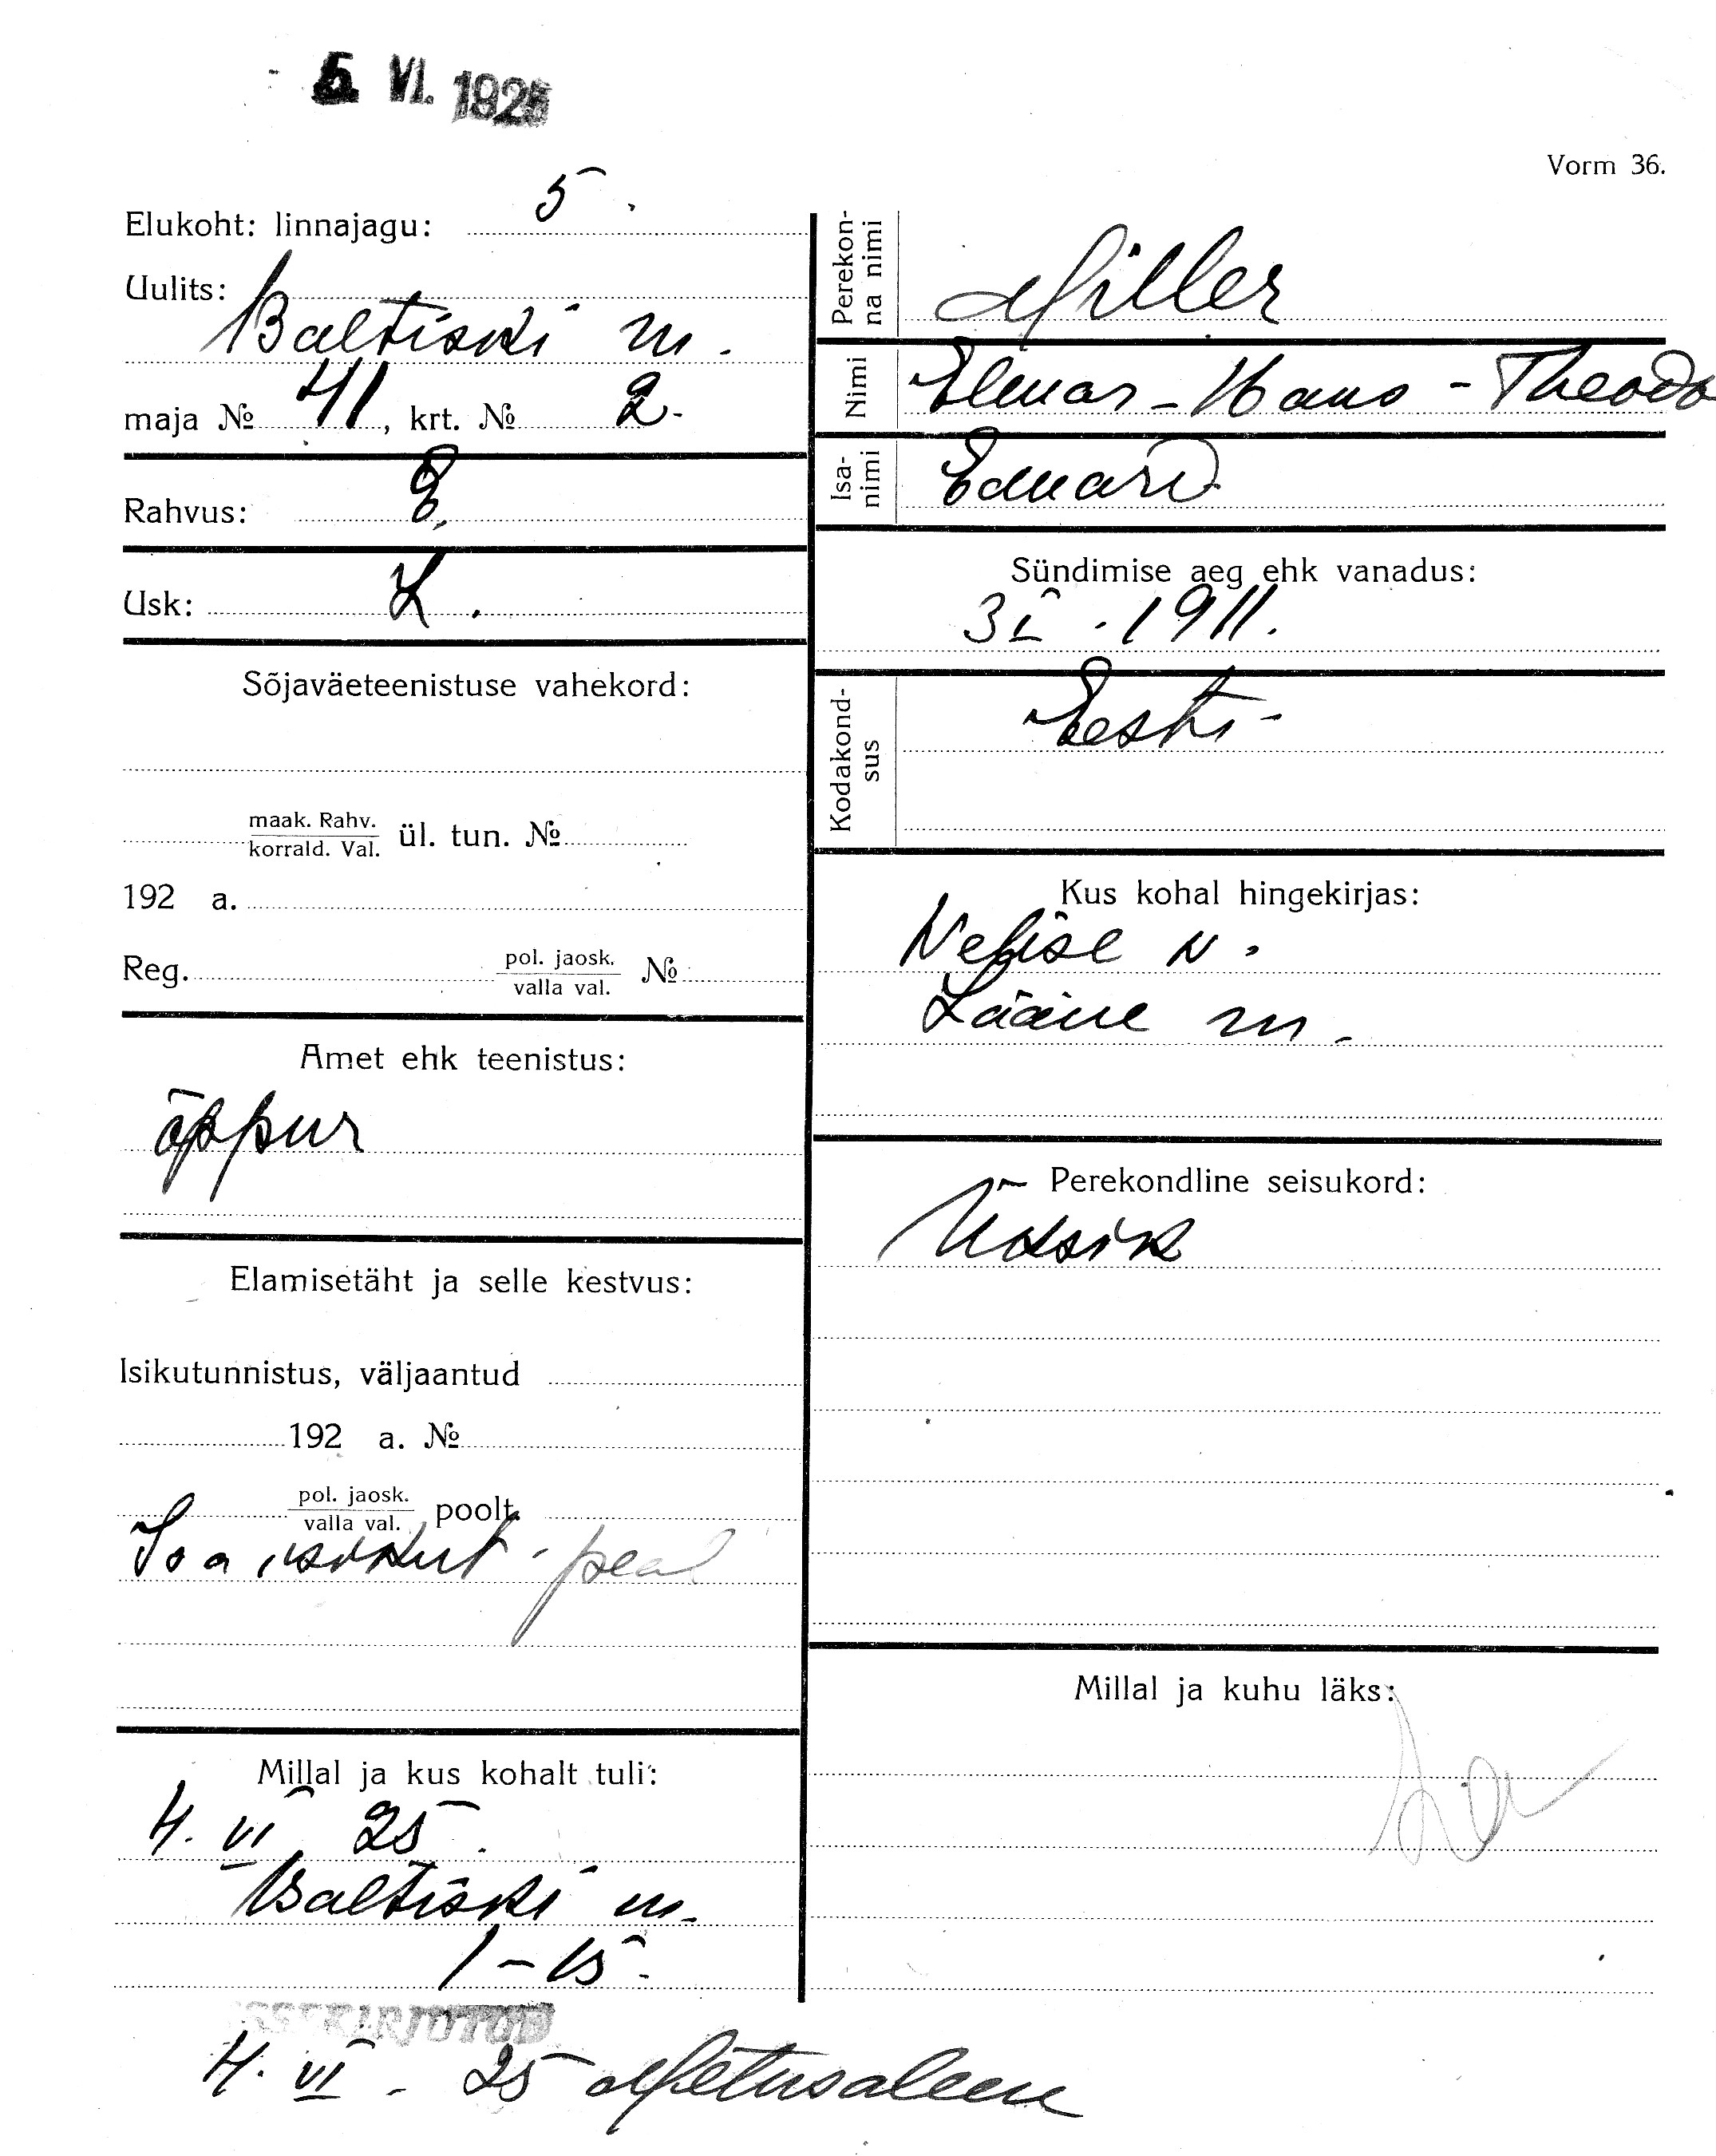 5. VI. 1925
Vorm 36.
Elukoht: linnajagu: 5.
Uulits:
Baltiski m.
maja № 41, krt. № 2.
Rahvus: E.
Usk: L.
Sõjaväeteenistuse vahekord:
maak. Rahv.
korrald. Val. ül. tun. №
192 a.
Reg. pol. jaosk. №
valla val.
Amet ehk teenistus:
õppur
Elamisetäht ja selle kestvus:
Isikutunnistus, väljaantud
192 a. №
pol. jaosk. poolt
valla val.
Isa isikut. peal
Millal ja kus kohalt tuli:
4. VI 25.
Baltiski m.
1–15.
Perekonna nimi
Miller
Nimi
Elmar-Hans-Theodo
Isanimi
Eduard
Sündimise aeg ehk vanadus:
1911.
Kodakondsus
Eesti
Kus kohal hingekirjas:
Lääne m.
Perekondline seisukord:
Üksik
Millal ja kuhu läks:
SISSEKIRJUTUD
4. VI. 25 Metusaleem